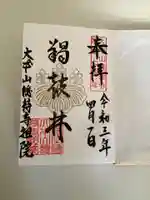 奉拝
令和三年
四月一日
鼓林
大本山總持寺祖院